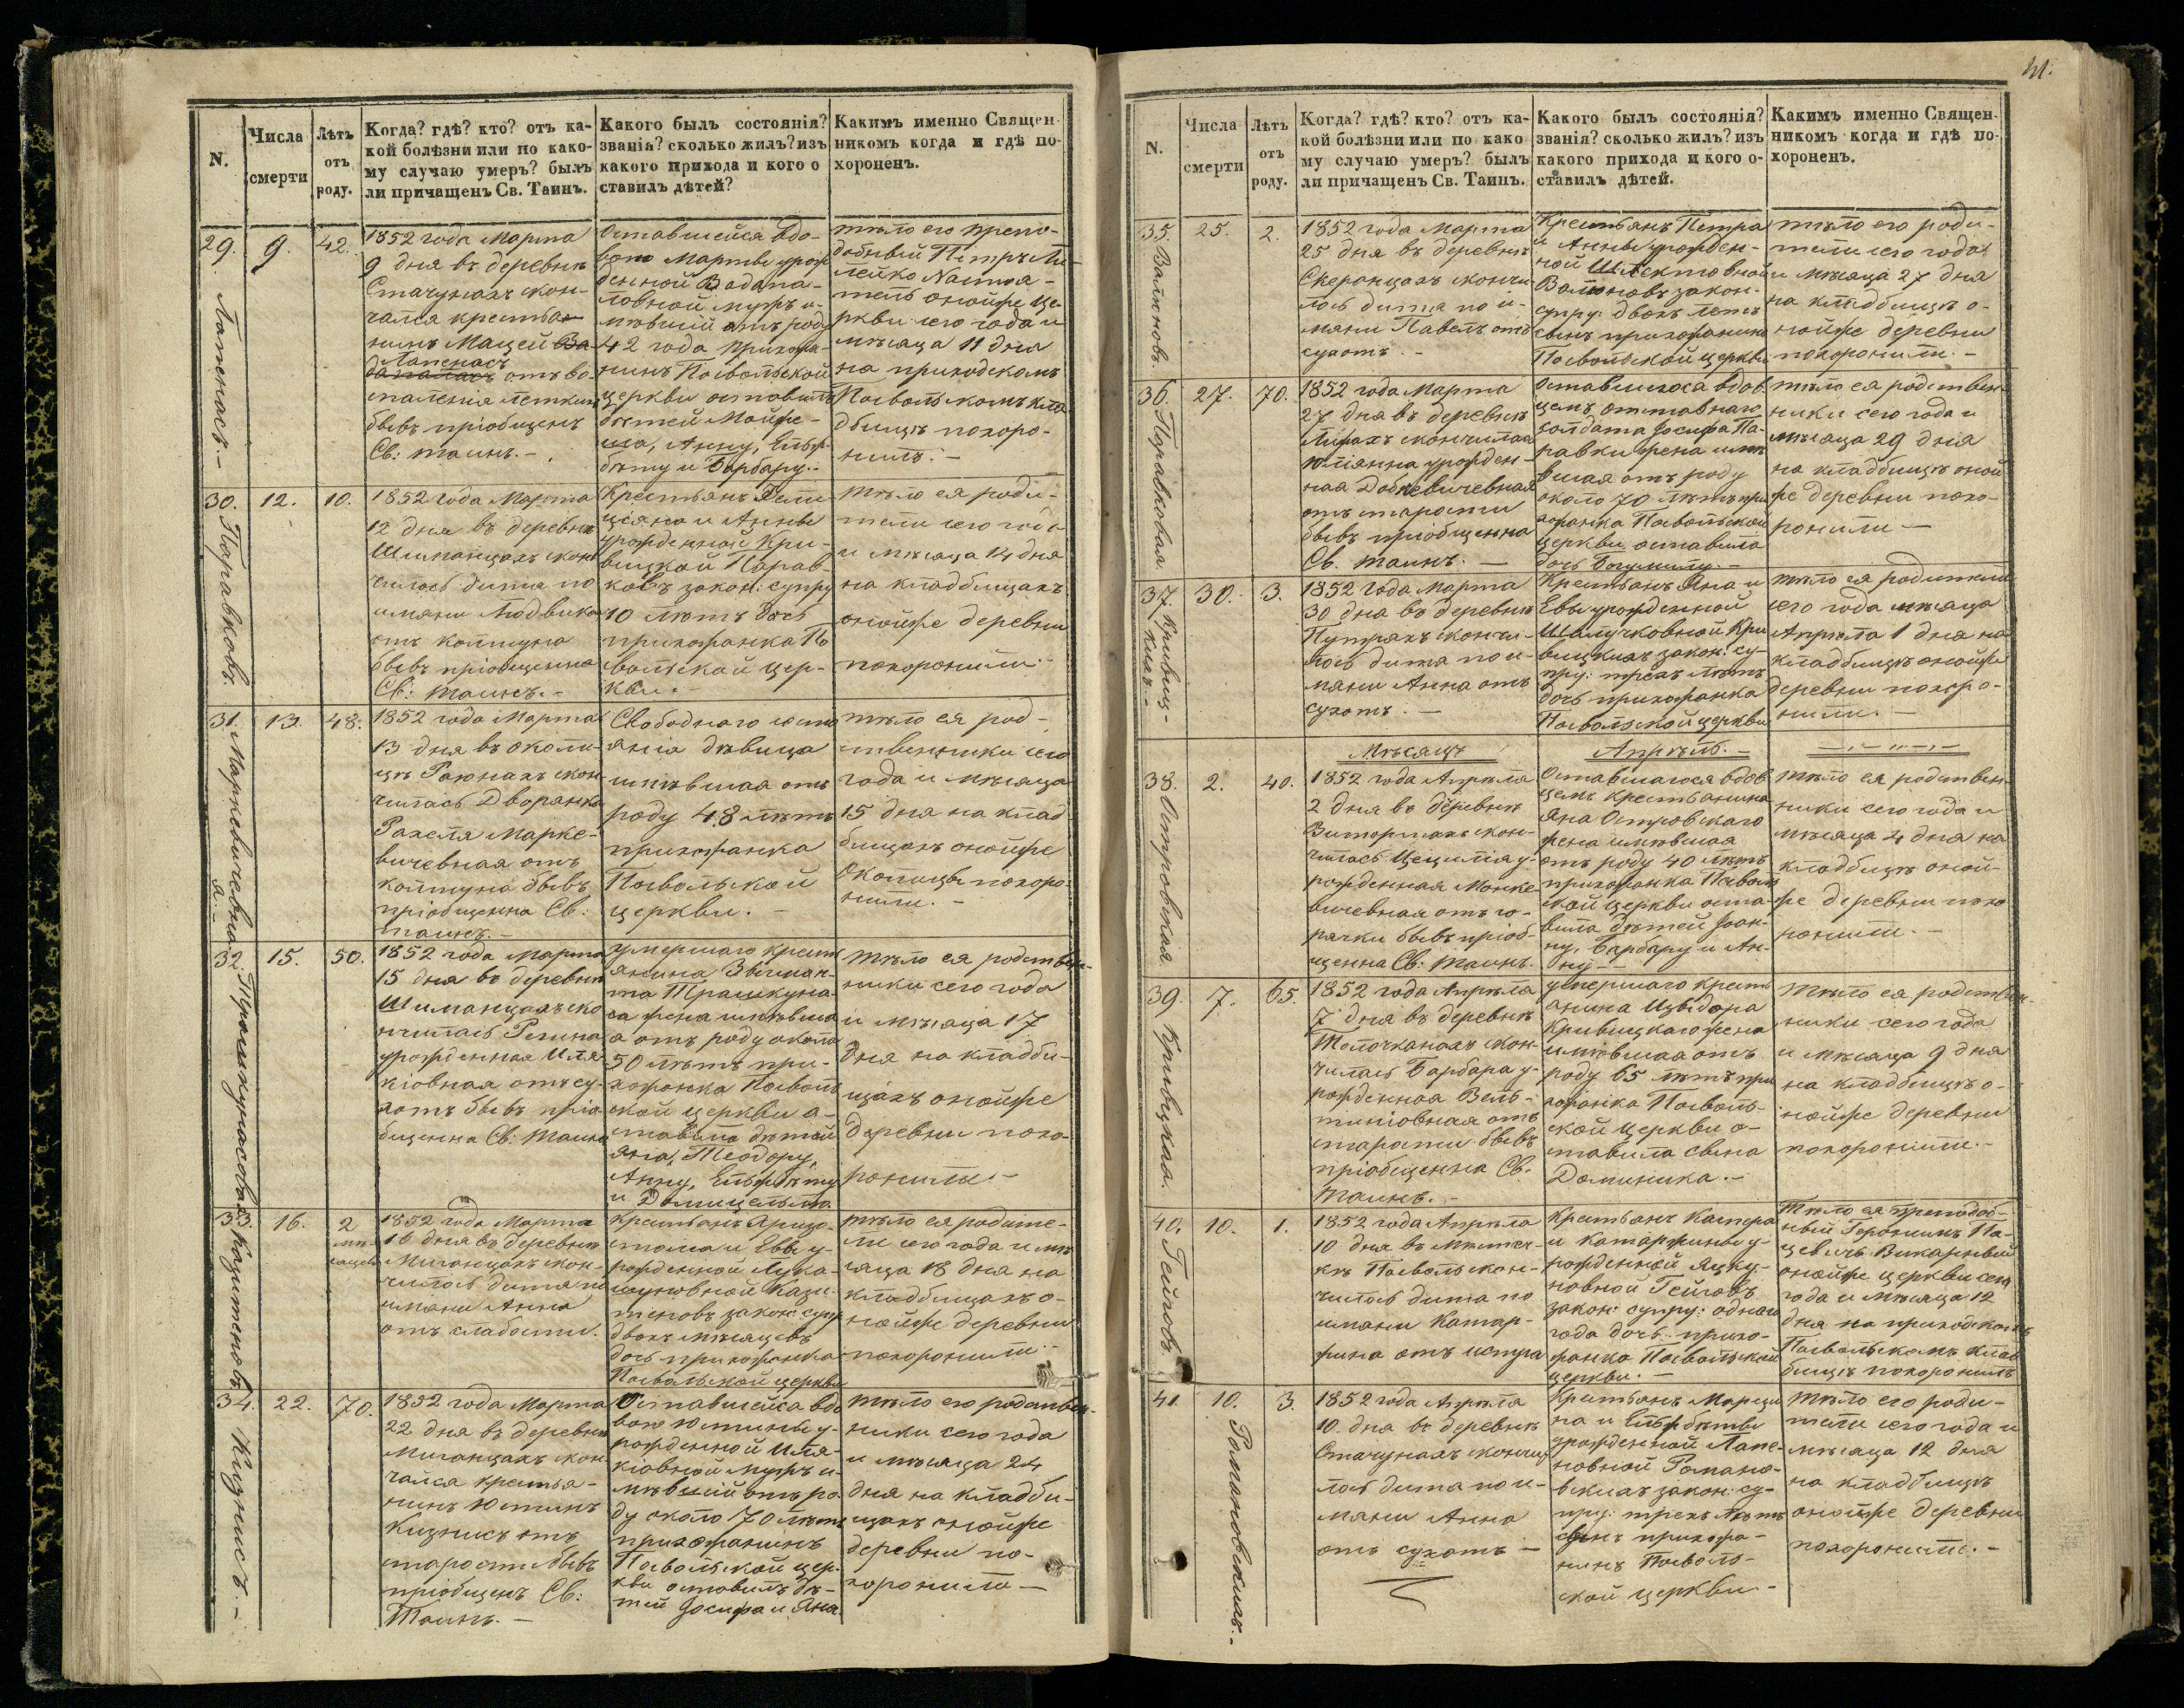 41.
N.
Числа
смерти
Лѣтъ
отъ
роду.
Когда? гдѣ? кто? отъ ка-
кой болѣзни или по како-
му случаю умеръ? былъ
ли причащенъ Св. Таинъ.
Какого былъ состоянія?
званія? сколько жилъ? изъ
какого прихода и кого о
ставилъ дѣтей?
Какимъ именно Священ-
никомъ когда и гдѣ по-
хороненъ.
29.
Лапенасъ.-
9.
42.
1852 года Марта
9 дня въ деревнѣ
Стачунахъ скон-
чался крестья-
нинъ Мацей
Лапенасъ
отъ во-
спаленія легкихъ
бывъ пріобщенъ
Св: таинъ.-
Оставшейся вдо-
вою Марты урож
денной
мужъ и-
мѣвшій отъ роду
42 года прихожа-
нинъ Посвольской
церкви оставилъ
дѣтей
Анну, Ельж-
бѣту и Барбару.-
тѣло его препо-
добный Петръ
оной же це-
ркви сего года и
мѣсяца 11 дня
на приходскомъ
Посвольскомъ кла
дбищѣ похоро-
нилъ.-
30.
Паравковъ.
12.
10.
1852 года Марта
12 дня въ деревнѣ
Шиманцахъ скон
чалось дитя по
имяни Людвика
отъ колтуна
бывъ пріобщенна
Св: таинъ.-
Крестьянъ Фели-
ціяна и Анны
урожденной Кри-
вицкой Парав-
ковъ закон: супру
10 лѣтъ дочь
прихожанка По
свольской цер-
кви.-
тѣло ея роди-
тели сего года
и мѣсяца 14 дня
на кладбищахъ
онойже деревни
похоронили.-
31.
Маркевичевна
я.-
13.
48.
1852 года Марта
13 дня въ околи-
цѣ Раюнахъ скон-
чилась Дворянка
Рахеля Марке-
вичевная отъ
колтуна бывъ
пріобщенна Св.
таинъ.-
Свободнаго состо
янія дѣвица
имѣвшая отъ
роду 48 лѣтъ
прихожанка
Посвольской
церкви.-
тѣло ея род-
ственники сего
года и мѣсяца
15 дня на клад
бищахъ онойже
Околицы похоро-
нили.-
32.
Трашкунасова
15.
50.
1852 года Марта
15 дня въ деревнѣ
Шиманцахъ ско
нчилась Регина
урожденная
отъ су-
хотъ бывъ пріо
бщенна Св: таинъ
умершаго крест
янина
та Трашкуна-
са жена имѣвша
я отъ роду около
50 лѣтъ при-
хожанка Посволь
ской церкви о-
ставила дѣтей
Яна, Теодору,
Анну, Ельжбѣту
и Домицелью
тѣло ея родствен-
ники сего года
и мѣсяца 17
дня на кладби-
щахъ онойже
деревни похо-
ронили.-
33.
16.
2
мѣ
сяцевъ
1852 года Марта
16 дня въ деревнѣ
Миганцахъ скон-
чилась дитя по
имяни Анна
отъ слабости.
Крестьянъ
и Евы у-
рожденной
закон: супр
двохъ мѣсяцевъ
дочь прихожанка
Посвольской церкви
тѣло ея родите-
ли сего года и мѣ
сяца 18 дня на
кладбищахъ о-
нойже деревни
похоронили.-
34.
Кизнисъ.-
22.
70.
1852 года Марта
22 дня въ деревнѣ
Миганцахъ скон
чался крестья-
нинъ Юстинъ
Кизнисъ отъ
старости бывъ
пріобщенъ Св:
Таинъ.-
Оставшейся вдо
вою Юстины у-
рожденной
мужъ и-
мѣвшій отъ ро
ду около 70 лѣтъ
прихожанинъ
Посвольской цер-
кви оставилъ дѣ-
тей Іосифа и Яна.
тѣло его родствен-
ники сего года
и мѣсяца 24
дня на кладби-
щахъ онойже
деревни по-
хоронили-
N.
Числа
смерти
Лѣтъ
отъ
роду.
Когда? гдѣ? кто? отъ ка-
кой болѣзни или по како
му случаю умеръ? былъ
ли причащенъ Св. Таинъ.
Какого былъ состоянія?
званія? сколько жилъ? изъ
какого прихода и кого о-
ставилъ дѣтей.
Какимъ именно Священ-
никомъ когда и гдѣ по-
хороненъ.
35.
Валюновъ.
25.
2.
1852 года Марта
25 дня въ деревнѣ
сконча
лось дитя по и-
мяни Павелъ отъ
сухотъ.-
Крестьянъ Петра
и Анны урожден-
ной
Валюновъ закон-
супру: двохъ лѣтъ
сынъ прихожанинъ
Посвольской церкви
тѣло его роди-
тели сего года
и мѣсяца 27 дня
на кладбищѣ о-
нойже деревни
похоронили.-
36.
Паравковая.
27.
70.
1852 года Марта
27 дня въ деревнѣ
скончилась
Юліянна урожден-
ная
отъ старости
бывъ пріобщенна
Св. таинъ.-
Оставшагося вдов
цемъ отставнаго
солдата Іосифа Па-
равки жена имѣ
вшая отъ роду
около 70 лѣтъ при
хожанка Посвольской
церкви оставила
дочь Богумилу.-
тѣло ея родствен
ники сего года и
мѣсяца 29 дня
на кладбищѣ оной
же деревни похо-
ронили-
37.
Кривиц-
кихъ.-
30.
3.
1852 года Марта
30 дня въ деревнѣ
Путряхъ скончи-
лось дитя по и-
мяни Анна отъ
сухотъ.-
Крестьянъ Яна и
Евы урожденной
Кри
вицкихъ закон: су-
пру: трехъ лѣтъ
дочь прихожанка
Посвольской церкви
тѣло ея родители
сего года мѣсяца
Апрѣля 1 дня на
кладбищѣ онойже
деревни похоро-
нили.-
Мѣсяцъ
Апрѣль.-
38.
Островская
2.
40.
1852 года Апрѣля
2 дня въ деревнѣ
скон-
чилась Цецилія у-
рожденная Монке-
вичевная отъ го-
рячки бывъ пріоб-
щенна Св: таинъ.
Оставшагося вдов
цемъ крестьянина
Яна Островскаго
жена имѣвшая
отъ роду 40 лѣтъ
прихожанка Посволь
ской церкви оста-
вила дѣтей Іоан-
ну, Барбару и Ан-
ну-
тѣло ея родствен-
ники сего года и
мѣсяца 4 дня на
кладбищѣ оной-
же деревни похо
ронили.-
39.
Кривицкая.
7.
65.
1852 года Апрѣля
7 дня въ деревнѣ
скон-
чилась Барбара у-
рожденная
отъ
старости бывъ
пріобщенна Св.
таинъ.-
умершаго кресть
янина Изыдора
Кривицкаго жена
имѣвшая отъ
роду 65 лѣтъ при
хожанка Посволь-
ской церкви о-
ставила сына
Доминика.-
тѣло ея родствен-
ники сего года
и мѣсяца 9 дня
на кладбищѣ о-
нойже деревни
похоронили.-
40.
Гейговъ
10.
1.
1852 года Апрѣля
10 дня въ мѣстеч-
кѣ Посволь скон-
чилось дитя по
имяни Катар-
жина отъ
Крестьянъ Каспера
и Катаржины у-
рожденной Яцку-
новной Гейговъ
закон: супру: одного
года дочь прихо-
жанка Посвольской
церкви.-
Тѣло ея преподоб-
ный Геронимъ
Викарный
онойже церкви сего
года и мѣсяца 12
дня на приходскомъ
Посвольскомъ клад
бищѣ похоронилъ
41.
Романовскихъ.-
10.
3.
1852 года Апрѣля
10 дня въ деревнѣ
Стачунахъ скончи
лось дитя по и-
мяни Анна
отъ сухотъ-
Крестьянъ
на и Ельжбѣты
урожденной Лапе-
новной Романо-
вскихъ закон: су-
пру: трехъ лѣтъ
сынъ прихожа-
нинъ Посволь-
ской церкви-
тѣло его роди-
тели сего года и
мѣсяца 12 дня
на кладбищѣ
онойже деревни
похоронили.-